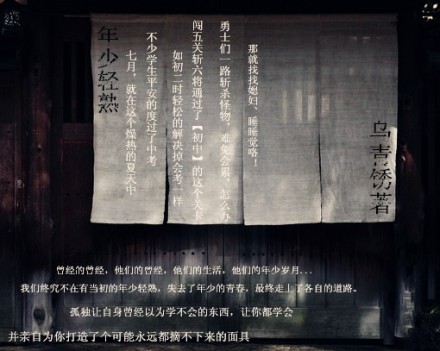 年少轻熟
七月，就在这个燥热的夏天中
不少学生平安的度过了中考
如初二时轻松的解决掉会考一样
闯五关斩六将通过了【初中】的这个关卡
勇士们一路斩杀怪物，难免会累，怎么办
那就找找媳妇、睡睡觉咯！
锈著
曾经的曾经，他们的曾经，他们的生活，他们的年少岁月...
我们终究不在有当初的年少轻熟，失去了年少的青春，最终走上了各自的道路。
孤独让自身曾经以为学不会的东西，让你都学会
并亲自为你打造了个可能永远都摘不下来的面具